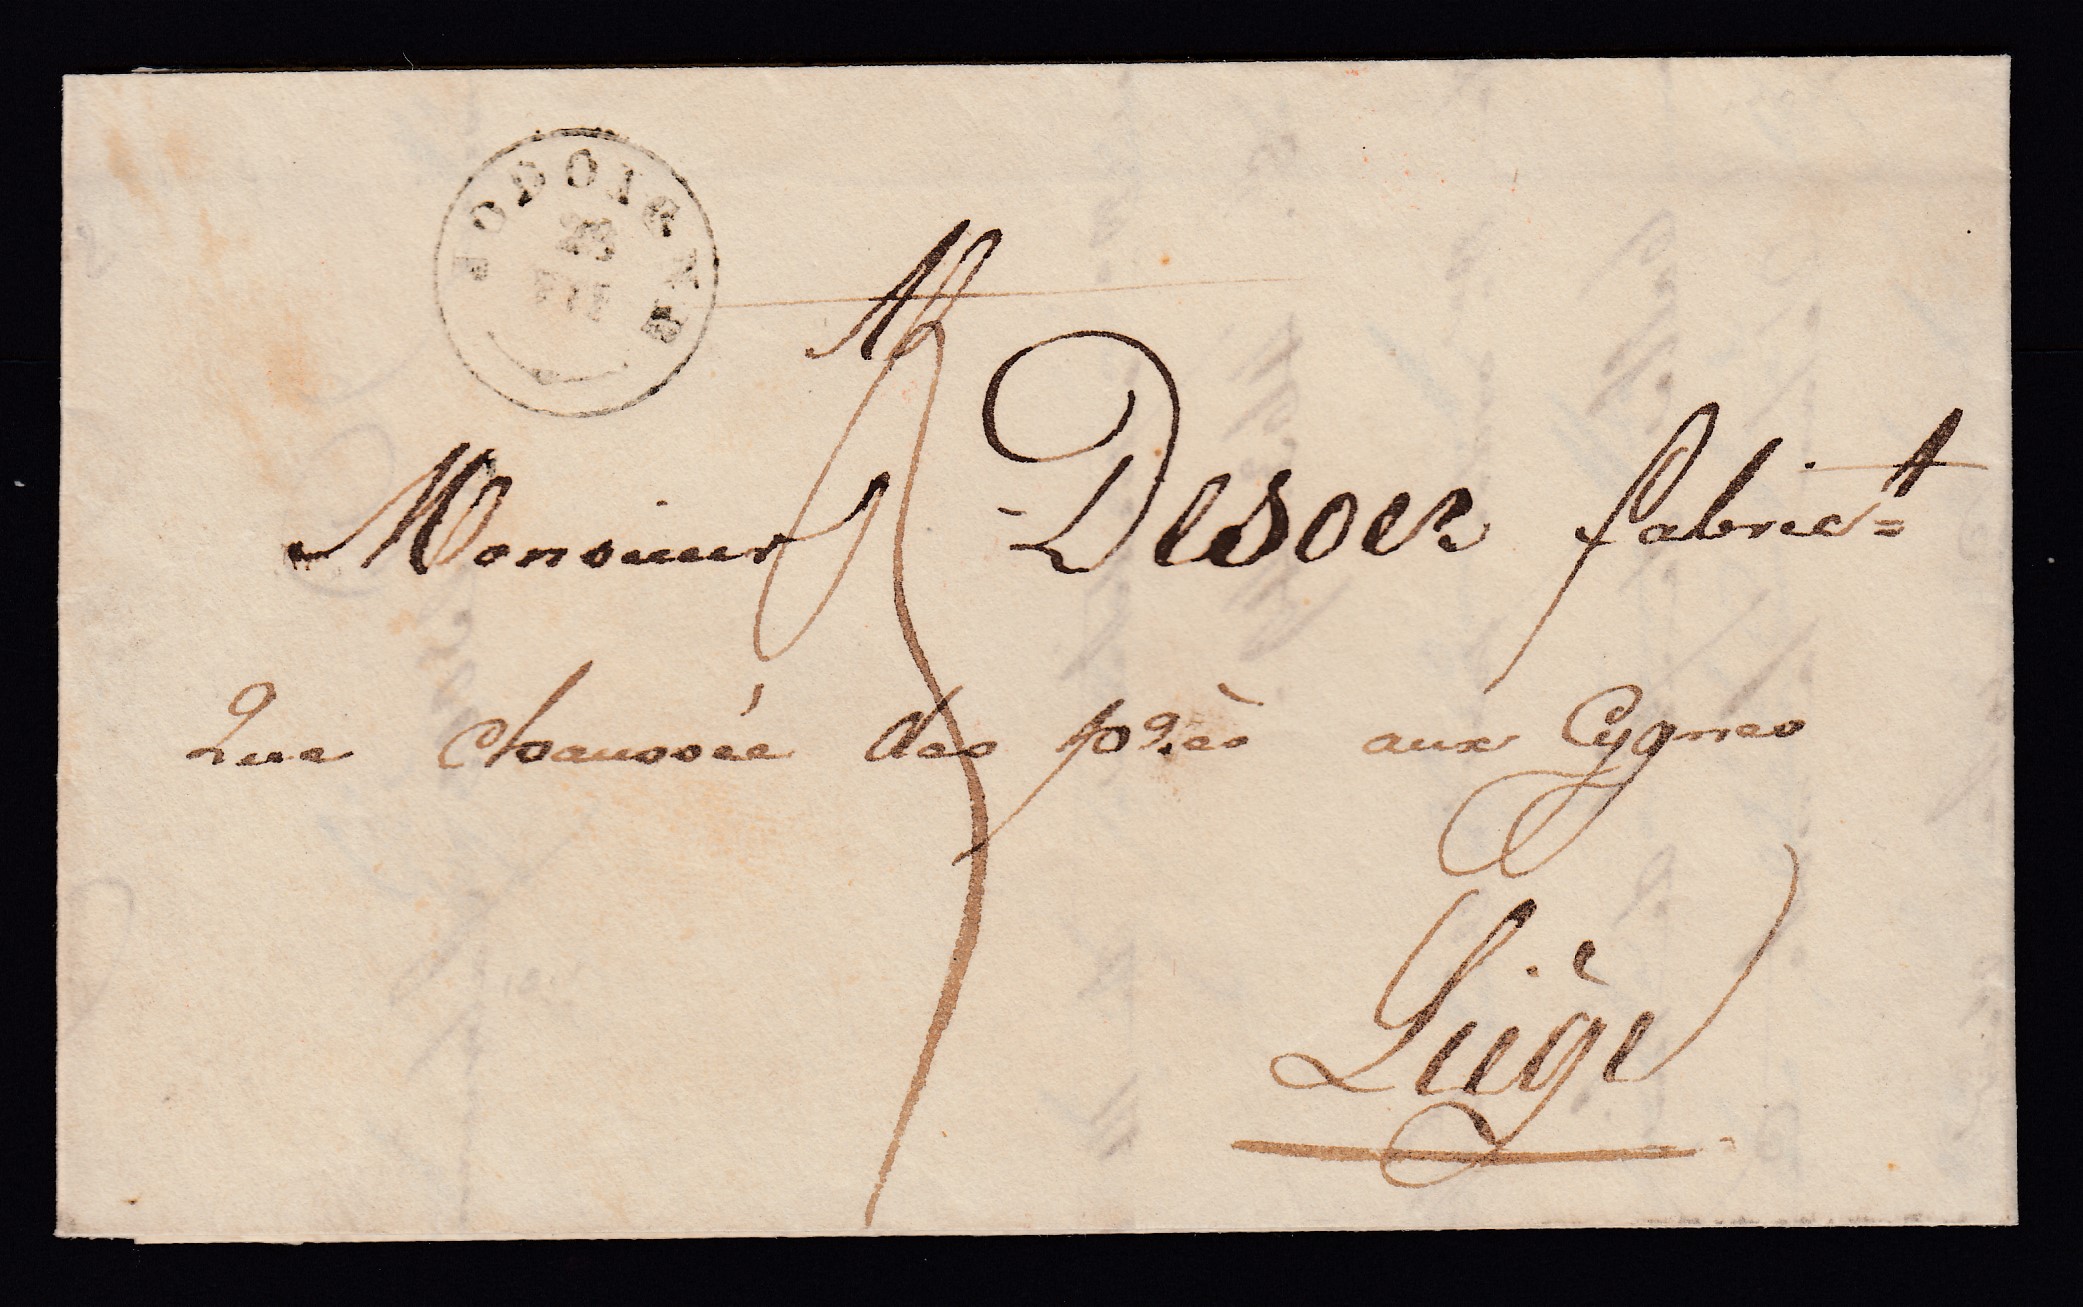 JODOIGNE
Monsieur Desoer fabric=t
Rue chaussée des près aux Cygnes
Liège